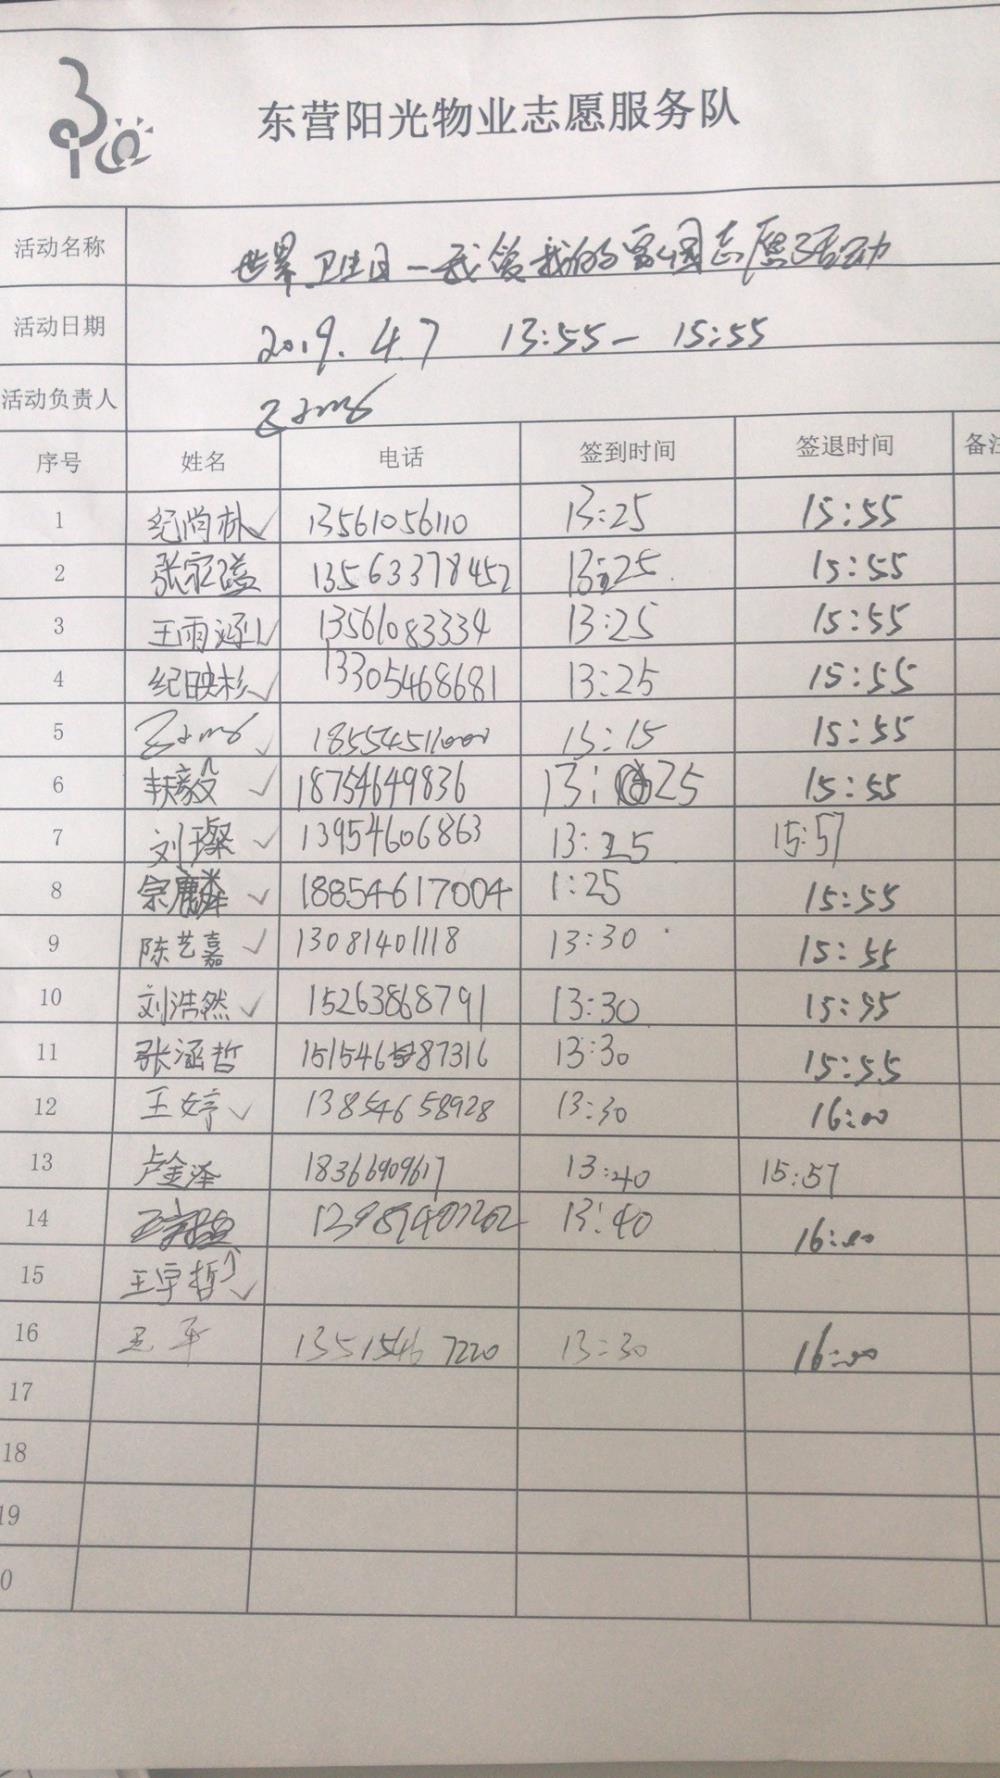 东营阳光物业志愿服务队
活动名称 世界卫生日—我爱我的家园志愿活动
活动日期 2019.4.7 13:55— 15:55
活动负责人
序号 姓名 电话 签到时间 签退时间 备注
1 纪尚林✓ 13561056110 13:25 15:55
2 张家溢 13563378452 13:25 15:55
3 王雨涵✓ 13561083334 13:25 15:55
4 纪映杉✓ 13305468681 13:25 15:55
5 ✓ 18554511000 13:15 15:55
6 扶毅✓ 18754649836 13:25 15:55
7 刘璨✓ 13954606863 13:25 15:57
8 宗麟✓ 18854617004 1:25 15:55
9 陈艺嘉✓ 13081401118 13:30 15:55
10 刘浩然✓ 15263868791 13:30 15:55
11 张涵哲 15154687316 13:30 15:55
12 王婷✓ 13854658928 13:30 16:00
13 卢金泽 18366909617 13:40 15:57
14 13:40 16:00
15 王宇哲✓
16 13515467220 13:30 16:00
17
18
19
0